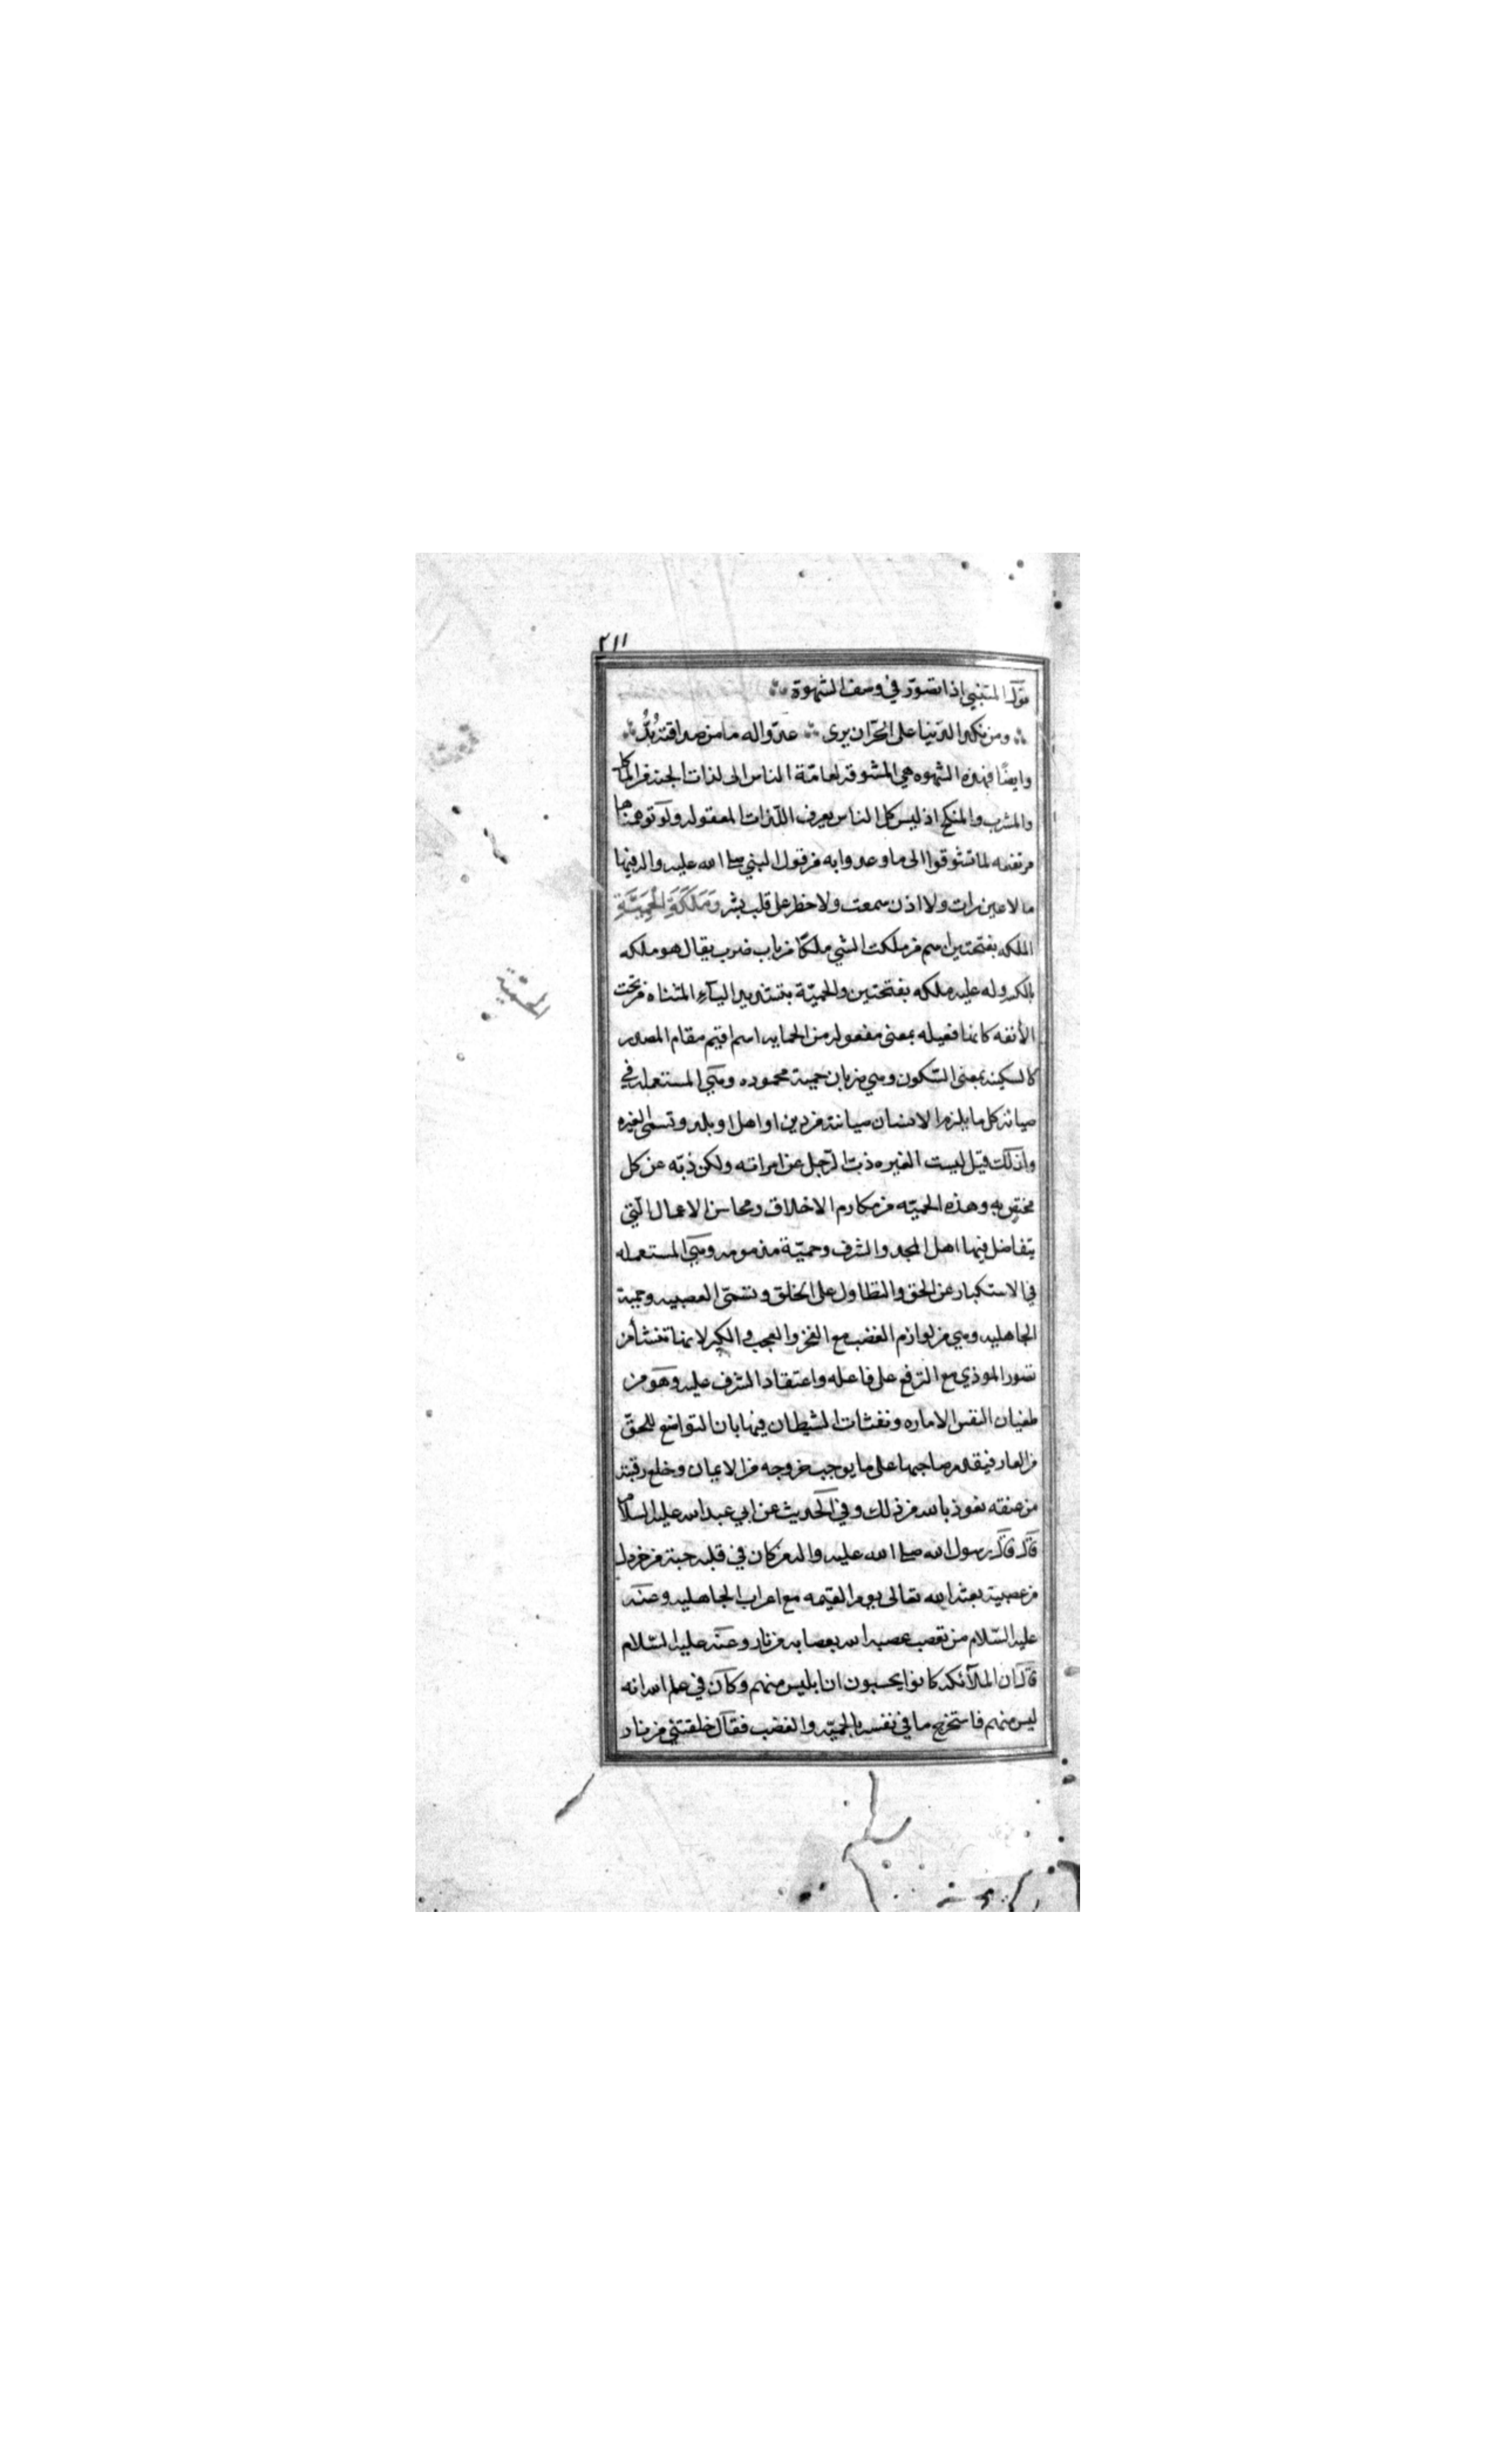 ٢١١
قول المتنبي اذا تصور في وصف الشهوة
ومن نكد الدنيا على الحران يرى عدوا له ما من صداقته بُدُّ
وايضًا فهذه الشهوه هي المشوقه لعامّة الناس الى لذات الجنه من المآكل
والمشرب والمنكح اذ ليس كل الناس يعرف اللذات المعقوله ولو توهمناها
مرتفعه لما تشوقوا الى ما وعدوا به من قول النبي صلى الله عليه واله فيها
ما لا عين رات ولا اذن سمعت ولا خطر على قلب بشر وَمَلَكَةِ الْحَمِيَّةِ
الملكه بفتحتين اسم من ملكت الشي ملكًا من باب ضرب يقال هو ملكه
بالكسر وله عليه ملكه بفتحتين والحميّة بتشديد الياء المثناه من تحت
الأنفه كانها فعيله بمعنى مفعوله من الحمايه اسم اقيم مقام المصدر
كالسكينه بمعنى السّكون وهي ضربان حمية محموده وهي المستعمله في
صيانة كل ما يلزم الانسان صيانته من دين او اهل او بلد وتسمى الغيره
ولذلك قيل ليست الغيره ذبّ الرّجل عن امراته ولكن ذبّه عن كل
مختص به وهذه الحميّه من مكارم الاخلاق ومحاسن الاعمال الّتي
يتفاضل فيها اهل المجد والشرف وحميّة مذمومه وهي المستعمله
في الاستكبار عن الحق والتطاول على الخلق وتسمّى العصبيه وحمية
الجاهليه وهي من لوازم الغضب مع الفخر والعجب والكبر لانها تنشأ من
تصور الموذي مع الترفع على فاعله واعتقاد الشرف عليه وهو من
طغيان النفس الاماره ونفثات الشيطان فيها بان التواضع للحقّ
من العار فيقدم صاحبها على ما يوجب خروجه من الايمان وخلع ربقته
من عنقه نعوذ بالله من ذلك وفي الحديث عن ابي عبد الله عليه السلام
قال قال رسول الله صلى الله عليه واله من كان في قلبه حبة من خردل
من عصبية بعثه الله تعالى يوم القيمه مع اعراب الجاهليه وعنه
عليه السّلام من تعصب عصبه الله بعصابه من نار وعنه عليه السّلام
قال ان الملآئكه كانوا يحسبون ان ابليس منهم وكان في علم الله انه
ليس منهم فاستخرج ما في نفسه بالحميّه والغضب فقال خلقتني من نار
الحمية